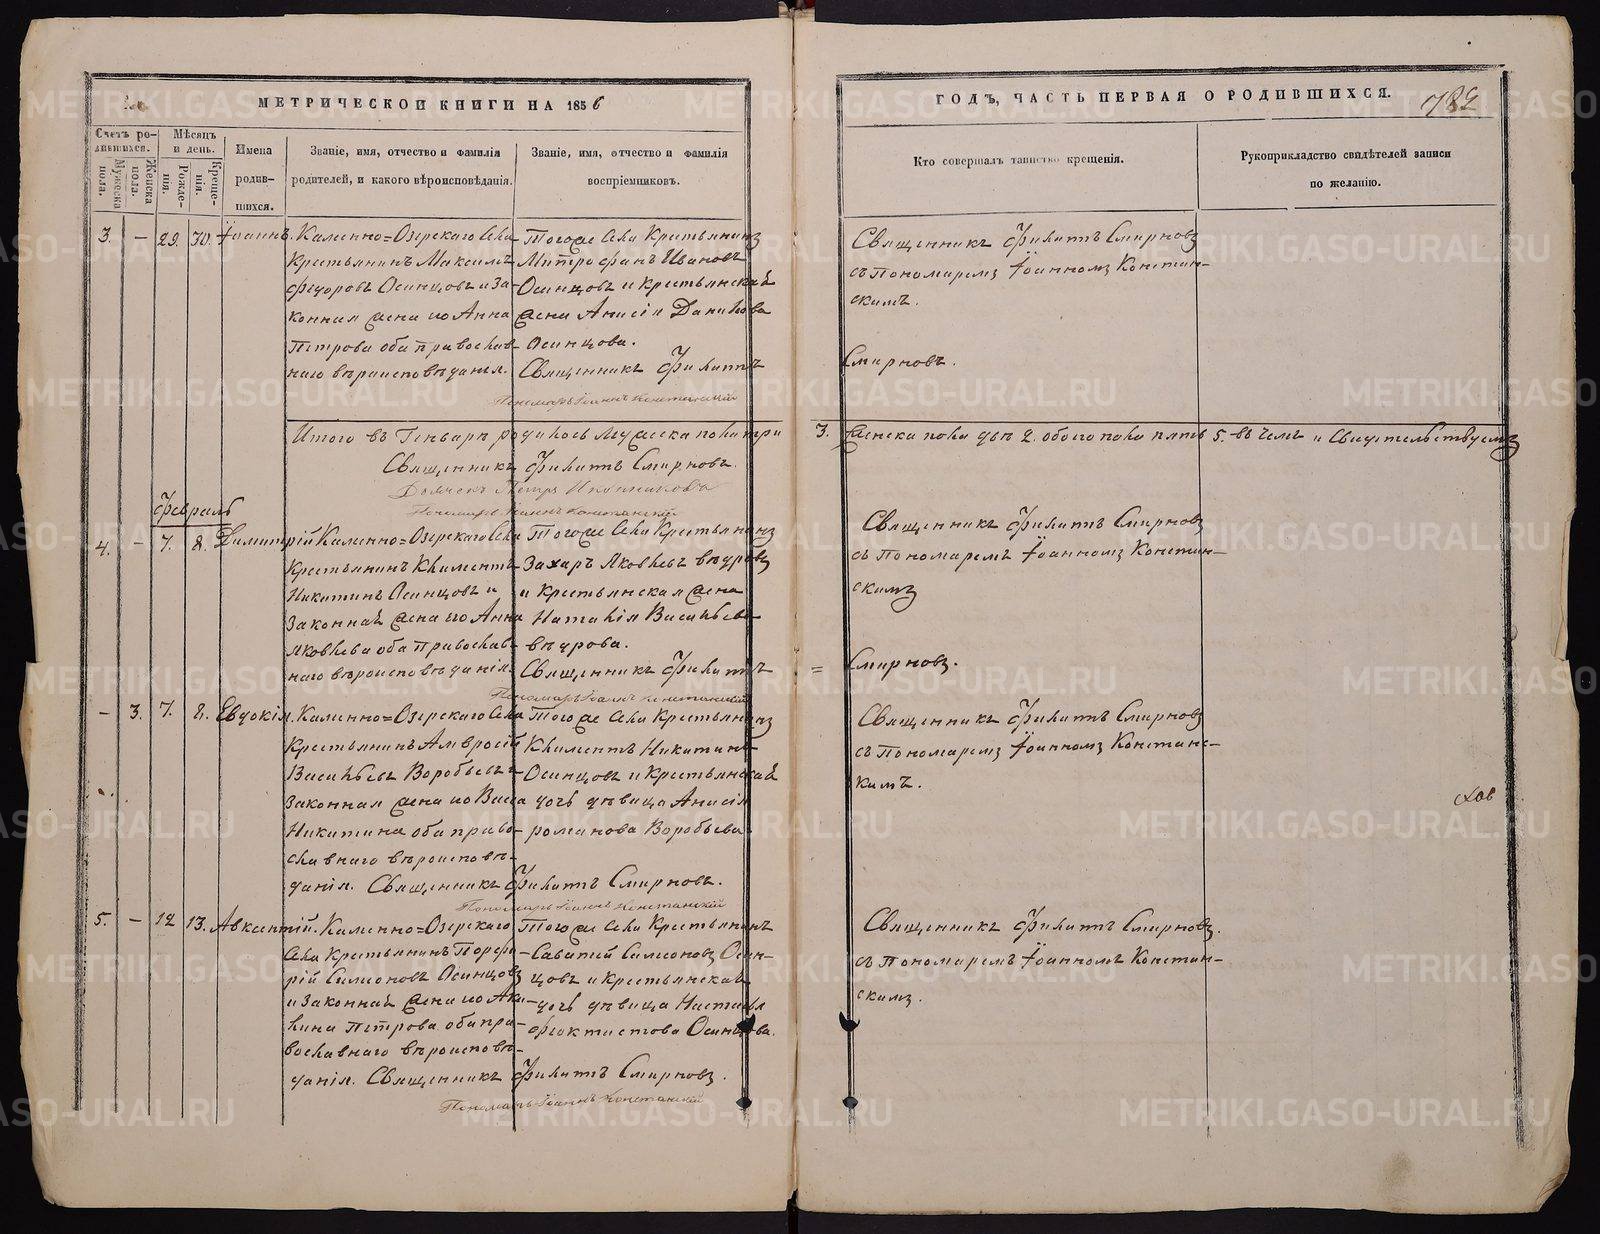 МЕТРИЧЕСКОЙ КНИГИ НА 1856
ГОДЪ, ЧАСТЬ ПЕРВАЯ О РОДИВШИХСЯ.
Счетъ ро-
дившихся.
Мужеска
пола.
Женска
пола.
Мѣсяцъ
и день.
Рожде-
нія.
Креще-
нія.
Имена
родив-
шихся.
Званіе, имя, отчество и фамилія
родителей, и какого вѣроисповѣданія.
Званіе, имя, отчество и фамилія
воспріемниковъ.
Кто совершалъ таинство крещенія.
Рукоприкладство свидѣтелей записи
по желанію.
3. – 29. 30. Іоаннъ.
Каменно=Озерскаго Села
Крестьянинъ Максимъ
Федоровъ Осинцовъ и За-
конная жена его Анна
Петрова оба православ-
наго вѣроисповѣданія.
Тогоже Села Крестьянинъ
Митрофанъ Ивановъ
Осинцовъ и крестьянская
жена Анисія Данилова
Осинцова.
Священникъ Филиппъ
Пономарь Іоаннъ Констанскій
Священникъ Филиппъ Смирновъ
съ Пономаремъ Іоанномъ Констан-
скимъ.
Смирновъ.
Итого въ Генварѣ родилось Мужеска пола три
3. Женска пола двѣ 2. обоего пола пять 5. въ чемъ и Свидѣтельствуемъ
Священникъ Филиппъ Смирновъ.
Дьячекъ Петръ Иконниковъ
Пономарь Іоаннъ Констанскій
Февраль
4. – 7. 8. Димитрій
Каменно=Озерскаго Села
Крестьянинъ Климентъ
Никитинъ Осинцовъ и
Законная жена его Анна
Яковлева оба Православ-
наго вѣроисповѣданія.
Тогоже Села Крестьянинъ
Захаръ Яковлевъ Вѣдровъ
и Крестьянская жена
Наталія Васильева
Вѣдрова.
Священникъ Филиппъ
Пономарь Іоаннъ Констанскій
Священникъ Филиппъ Смирновъ
съ Пономаремъ Іоанномъ Констан-
скимъ
= Смирновъ.
– 3. 7. 8. Евдокія.
Каменно=Озерскаго Села
Крестьянинъ Амвросій
Васильевъ Воробьевъ и
Законная жена его Васса
Никитина оба право-
славнаго вѣроисповѣ-
данія. Священникъ Филиппъ Смирновъ.
Тогоже Села Крестьянинъ
Климентъ Никитинъ
Осинцовъ и Крестьянская
дочь дѣвица Анисія
Романова Воробьева
Пономарь Іоаннъ Констанскій
Священникъ Филиппъ Смирновъ
съ Пономаремъ Іоанномъ Констанс-
кимъ.
5. – 12 13. Авксентій.
Каменно=Озерскаго
Села Крестьянинъ Порфи-
рій Симоновъ Осинцовъ
и Законная жена его Аки-
лина Петрова оба пра-
вославнаго вѣроисповѣ-
данія. Священникъ Филиппъ Смирновъ.
Тогоже Села Крестьянинъ
Саватій Симоновъ Осин-
цовъ и крестьянская
дочь дѣвица Настасья
Феоктистова Осинцова.
Пономарь Іоаннъ Констанскій
Священникъ Филиппъ Смирновъ.
съ Пономаремъ Іоанномъ Констан-
скимъ.
METRIKI.GASO-URAL.RU